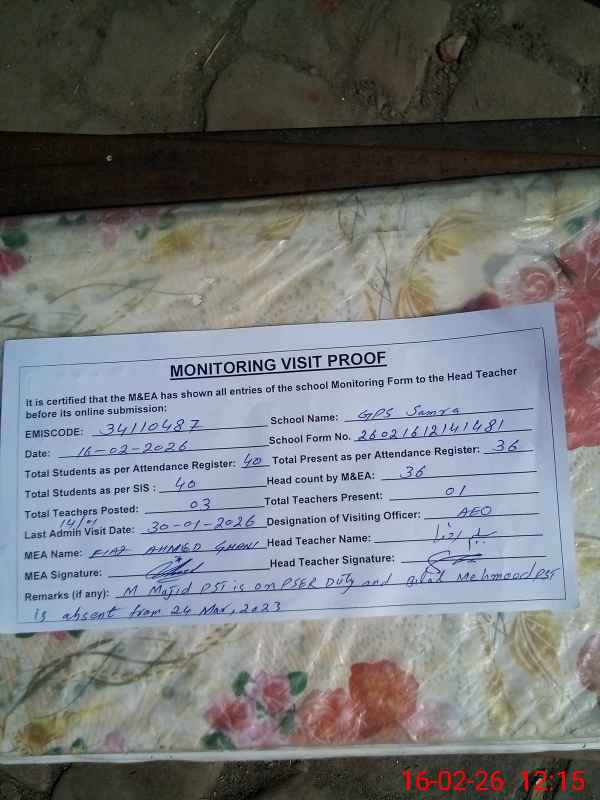 MONITORING VISIT PROOF
It is certified that the M&EA has shown all entries of the school Monitoring Form to the Head Teacher
before its online submission:
EMISCODE: 34110487 School Name: GPS Samra
Date: 16-02-2026 School Form No. 26021612141481
Total Students as per Attendance Register: 40 Total Present as per Attendance Register: 36
Total Students as per SIS : 40 Head count by M&EA: 36
Total Teachers Posted: 03 Total Teachers Present: 01
Last Admin Visit Date: 30-01-2026 Designation of Visiting Officer: AEO
MEA Name: AHMED GHANI Head Teacher Name:
MEA Signature: Head Teacher Signature:
Remarks (if any): M Majid PST is on PSER Duty and Bilal Mehmood PST
is absent from 24 Mar, 2023
16-02-26 12:15